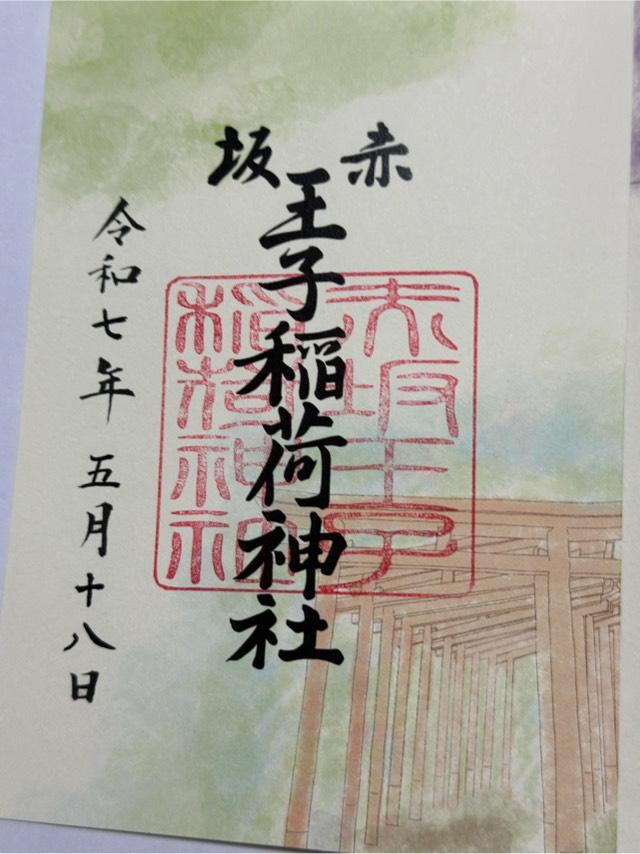 赤坂
王子稲荷神社
令和七年 五月十八日
赤坂王子
稲荷神社